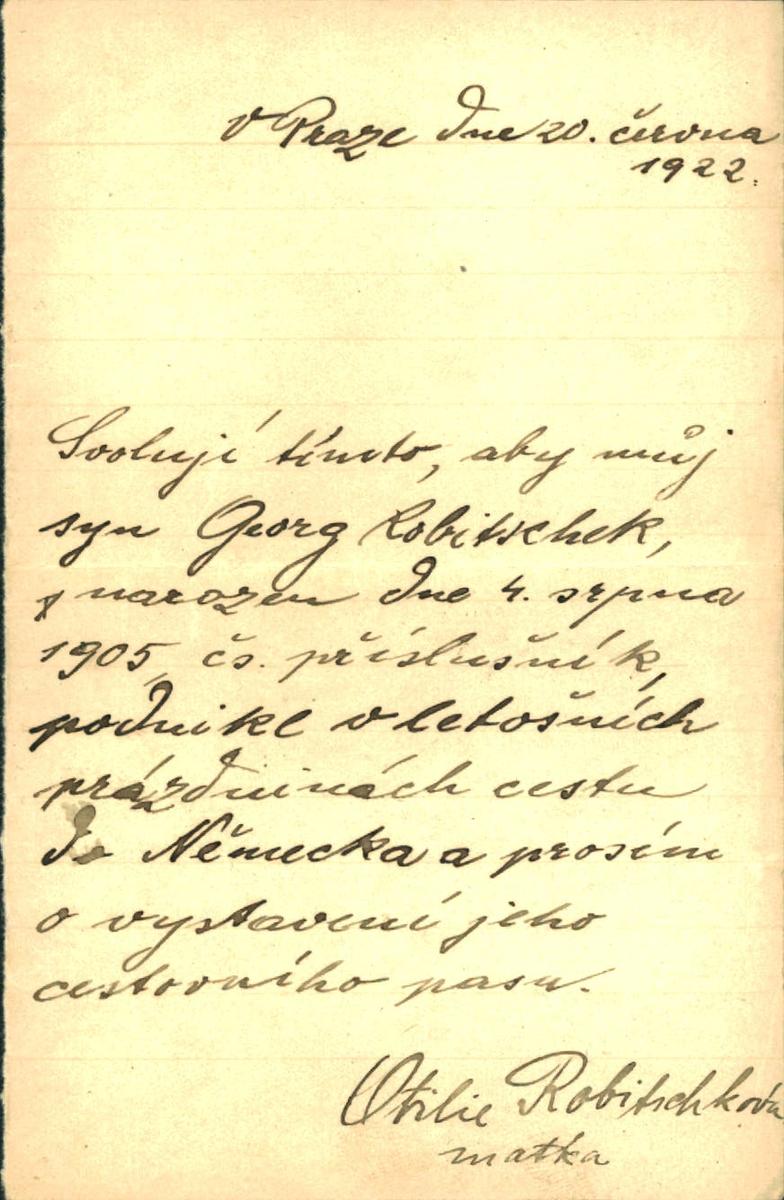 v Praze dne 20. června
1922.
Svoluji tímto, aby můj
syn Georg Robitschek,
narozen dne 4. srpna
1905, čs. příslušník,
podnikl v letošních
prázdninách cestu
do Německa a prosím
o vystavení jeho
cestovního pasu.
Otilie Robitschková
matka